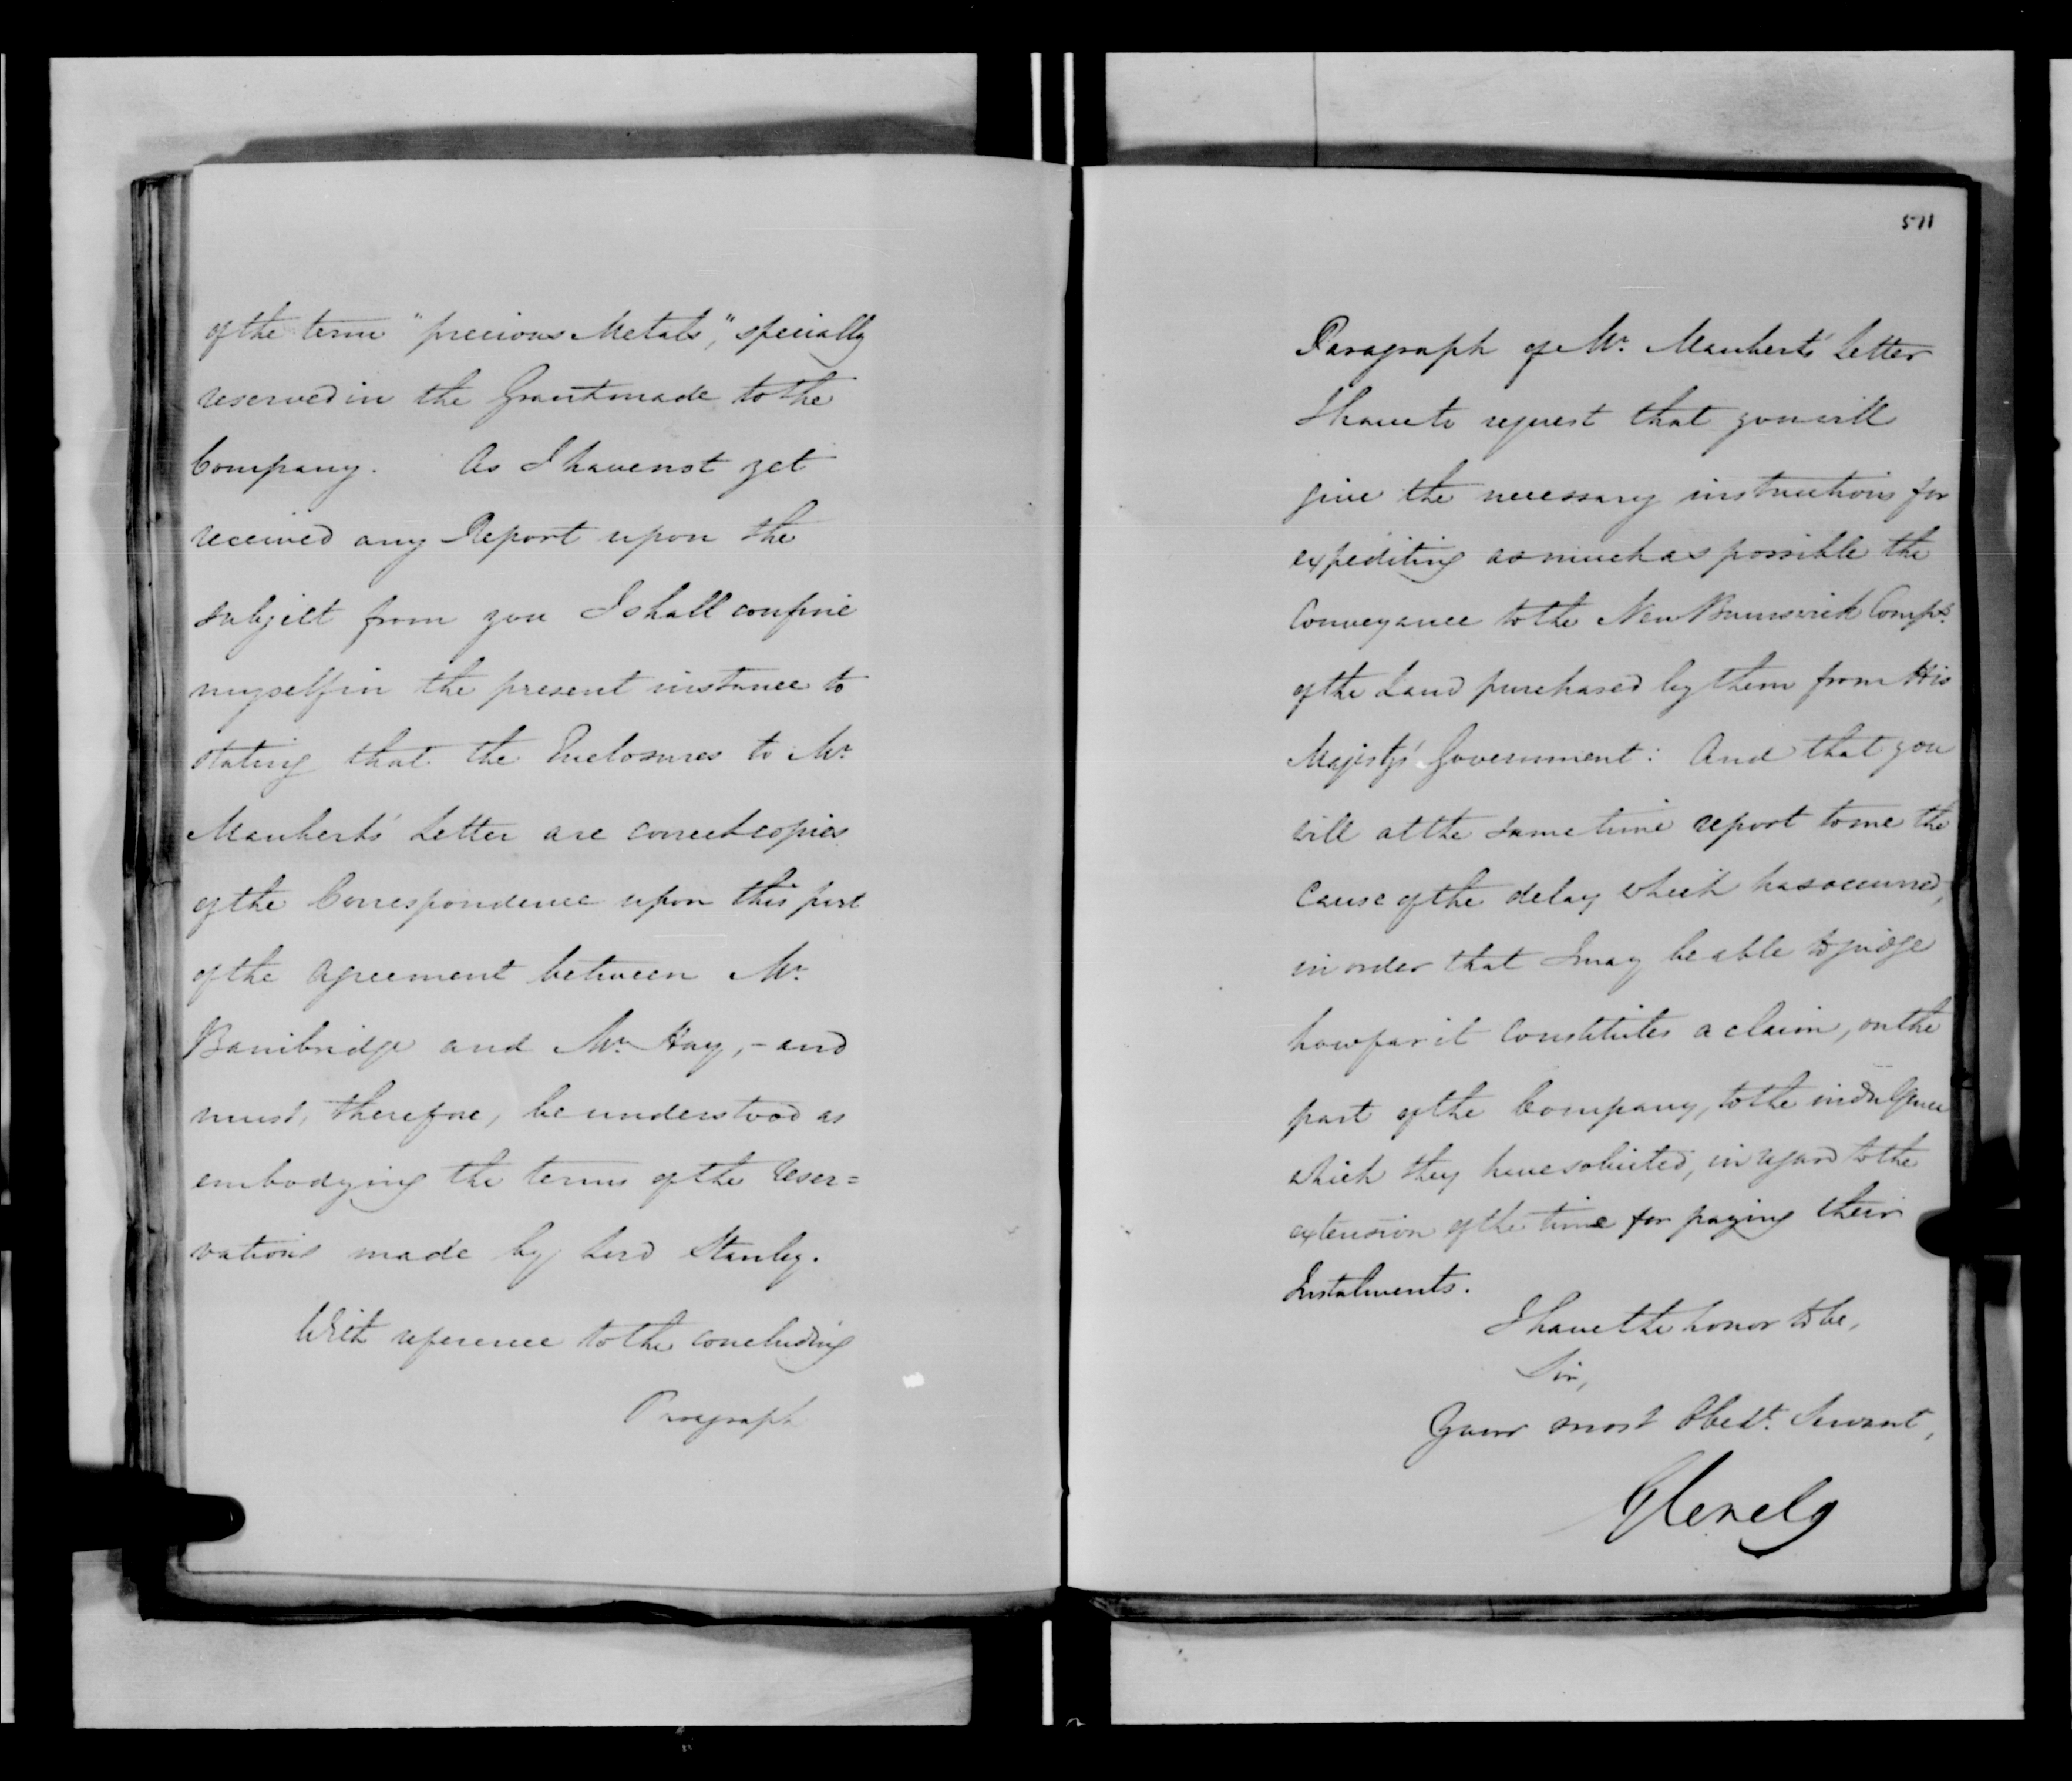 of the term "precious Metals," specially
reserved in the Grant made to the
Company. As I have not yet
received any Report upon the
subject from you I shall confine
myself in the present instance to
stating that the Enclosures to Mr.
Mauberts' Letter are correct copies
of the Correspondence upon this part
of the agreement between Mr.
Bainbridge and Mr. Hay, - and
must, therefore, be understood as
embodying the terms of the reser=
vations made by Lord Stanley.
With reference to the concluding
Paragraph
511
Paragraph of Mr. Mauberts' Letter
I have to request that you will
give the necessary instructions for
expediting as much as possible the
Conveyance to the New Brunswick Compy.
of the Land purchased by them from His
Majesty's Government: And that you
will at the same time report to me the
cause of the delay which has occurred,
in order that I may be able to judge
how far it constitutes a claim, on the
part of the Company, to the indulgence
which they have solicited, in regard to the
extension of the time for paying their
Instalments.
I have the honor to be,
Sir,
Your most Obedt. Servant,
Glenelg